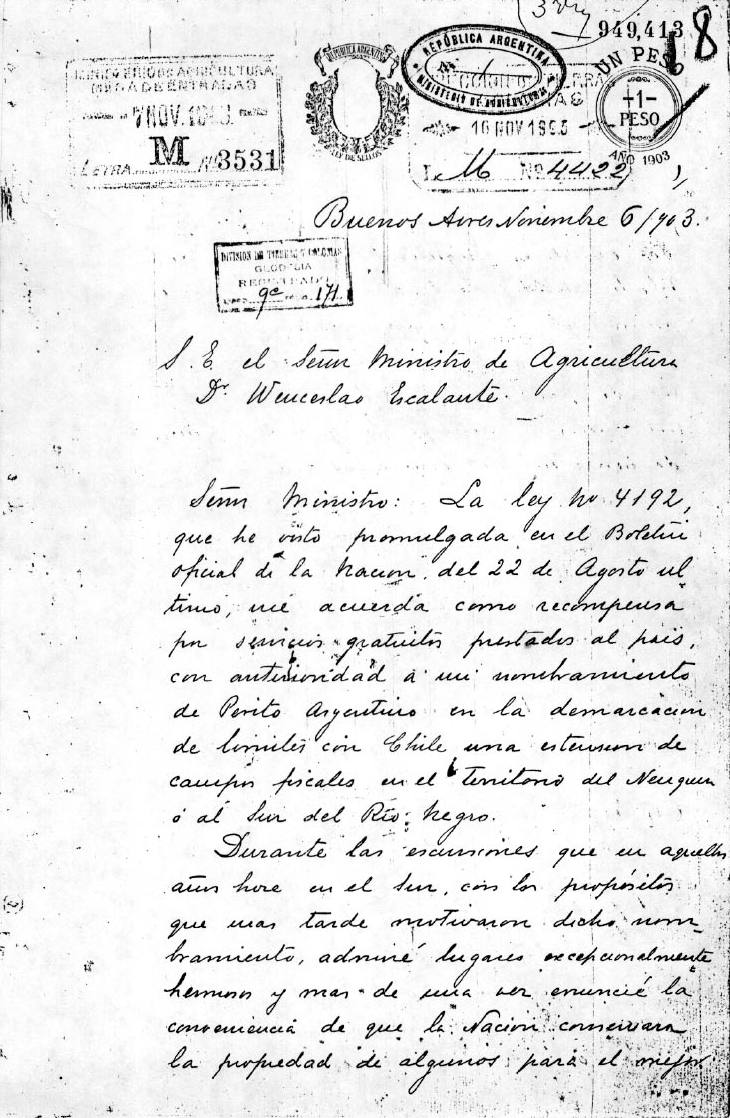 949,413
18
REPÚBLICA ARGENTINA
MINISTERIO DE AGRICULTURA
UN PESO
-1-
PESO
AÑO 1903
REPÚBLICA ARGENTINA
LEY DE SELLOS
MINISTERIO DE AGRICULTURA
MESA DE ENTRADAS
7 NOV. 1903
LETRA M Nº 3531
16 NOV 1903
L. M Nº 4422
Buenos Aires Noviembre 6/903.
DIVISION DE TIERRAS Y COLONIAS
GEODESIA
REGISTRADO
171
S. E. el Señor Ministro de Agricultura
Dr. Wenceslao Escalante.
Señor Ministro: La ley No 4192,
que he visto promulgada en el Boletin
oficial de la Nacion, del 22 de Agosto ul
timo, me acuerda como recompensa
por servicios gratuitos prestados al pais,
con anterioridad á mi nombramiento
de Perito Argentino en la demarcacion
de limites con Chile una estension de
campos fiscales en el territorio del Neuquen
ó al Sur del Rio Negro.
Durante las escursiones que en aquellos
años hice en el Sur, con los propósitos
que mas tarde motivaron dicho nom-
bramiento, admiré lugares excepcionalmente
hermosos y mas de una vez enuncié la
conveniencia de que la Nacion conservara
la propiedad de algunos para el mejor